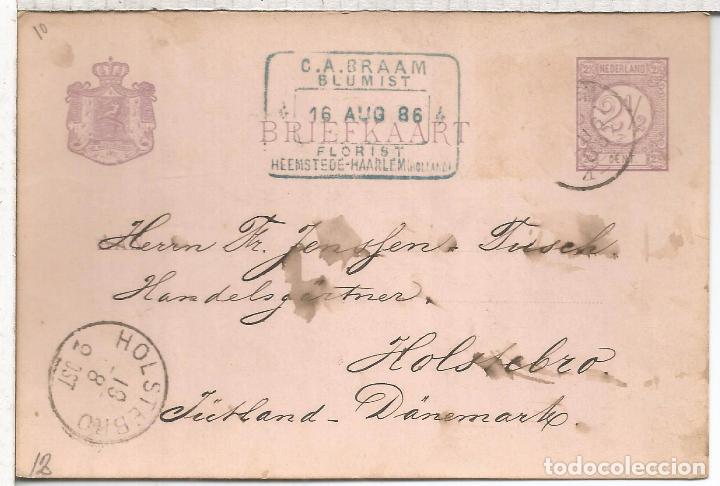 10
C.A.BRAAM
BLUMIST
16 AUG 86
BRIEFKAART
FLORIST
HEEMSTEDE-HAARLEM (HOLLAND)
2½ NEDERLAND 2½
2½
CENT
Herrn Fr. Jenssen-Tusch.
Handelsgärtner.
Holstebro.
Jütland-Dänemark.
HOLSTEBRO
18
8
2 POST
12
todocoleccion
todocoleccion.net